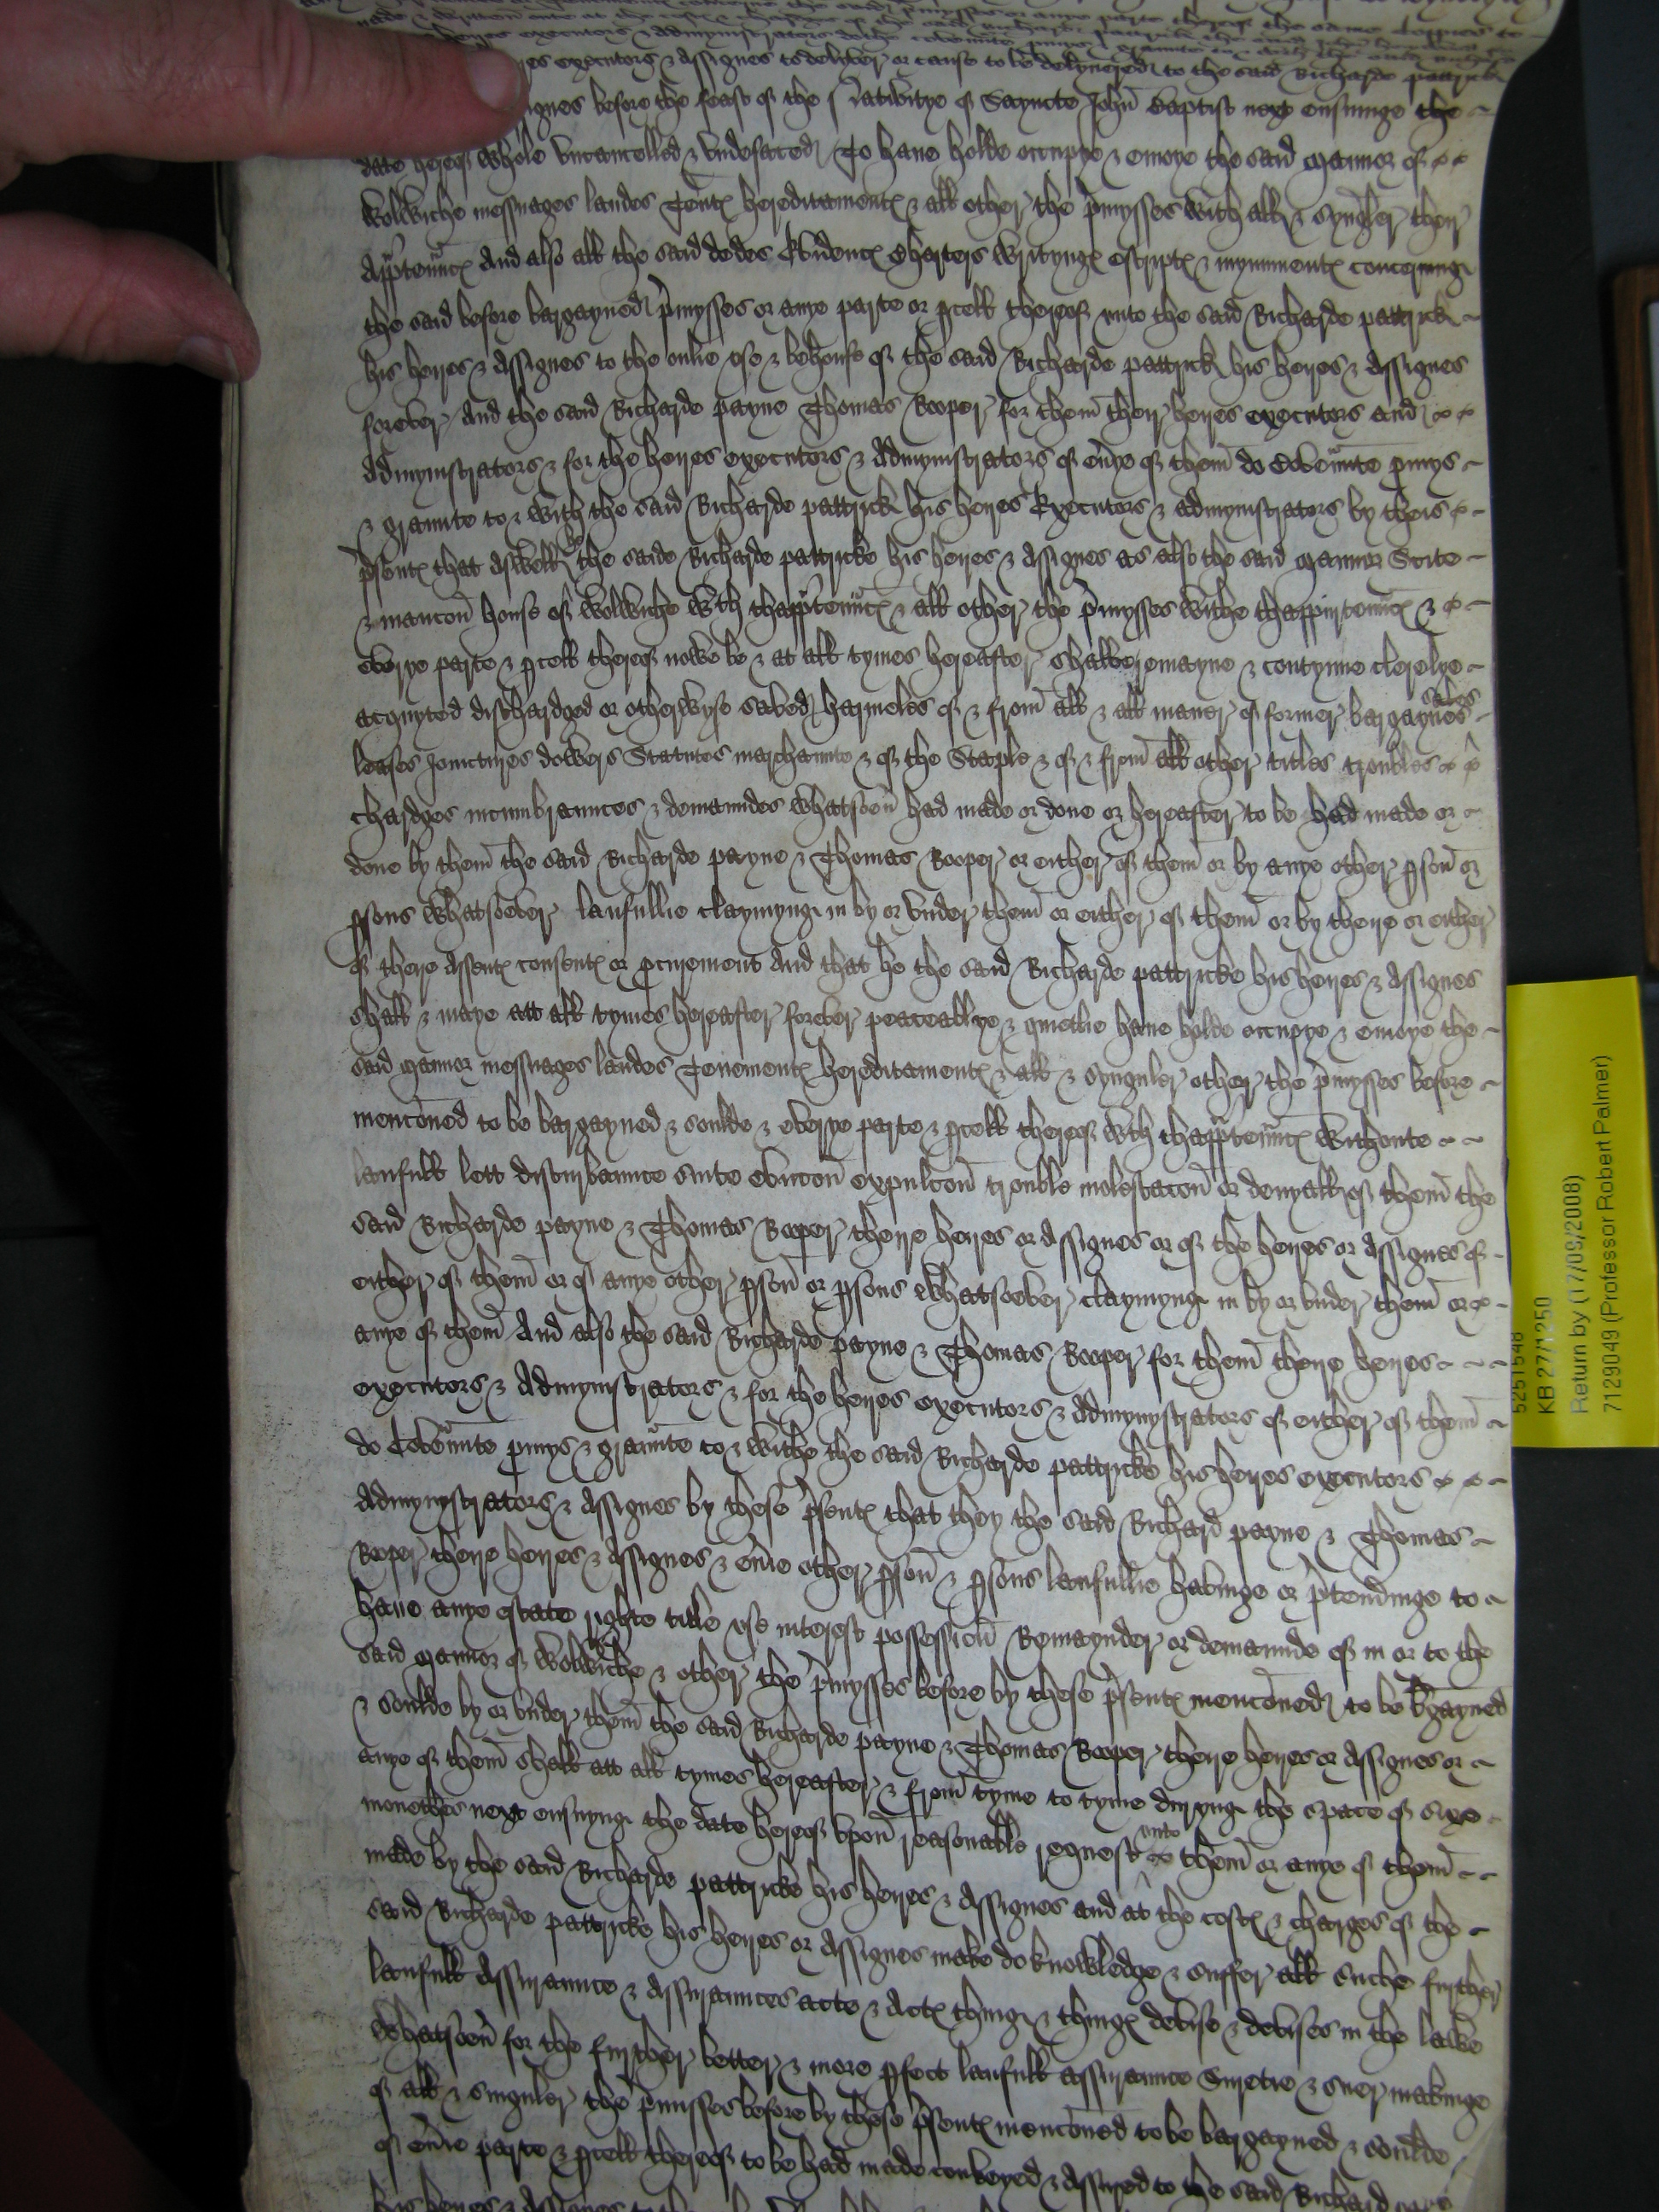 executors & Assignes to delyver or cause to be delyvered to the said Richarde pattrick
before the feast of the Nativitye of Saynte John Baptist next ensuinge the
date hereof whole uncancelled & undefaced To have holde occupye & enioye the said Mannor of
Wolwiche messuages landes Tentes hereditamentes & all other the pmysses with all & synguler their
Apptenncs And also all the said dedes Evidences Charters writynges escriptes & mynumentes concerning
the said before bargayned pmysses or anye parte or pcell thereof unto the said Richarde pattrick
his heyres & Assignes to the onlie use & behoufe of the said Richarde pattrick his heyres & Assignes
forever And the said Richarde payne Thomas Rooper for them their heyres executors and
Admynistrators & for the heyres executors & Admynistrators of evye of them do Covennte pmys
& graunte to & with the said Richarde pattrick his heyres Executors & admynistrators by theis
psentes that aswell he the saide Richarde pattricke his heyres & Assignes as also the said Mannor Scite
& mancon house of Wolwiche wth thapptenncs & all other the pmysses withe thappurtenncs &
everye parte & pcell thereof nowe be & at all tymes hereafter shalbe remayne & contynue clerelye
acquyted dischardged or otherwyse saved harmeles of & from all & all maner of former bargaynes sales
leases Joinctures dowers Statutes marchaunte & of the Staple & of & from all other titles troubles
chardges incumbraunces & demaundes whatsoev had made or done or hereafter to be had made or
done by them the said Richarde payne & Thomas Rooper or either of them or by anye other pson or
psons whatsoever laufullie claymynge in by or under them or either of them or by theyre or either
of there Assentes consentes or pcurement And that he the said Richarde pattricke his heyres & Assignes
shall & maye att all tymes hereafter forever peaceablye & quietlie have holde occupye & enioye the
said Mannor messuages landes Tenementes hereditamentes & all & synguler other the pmysses before
menconed to be bargayned & soulde & everye parte & pcell thereof wth thapptenncs withoute
laufull lett disturbaunce suite eviccon expulcon trouble molestacon or denyall of them the
said Richarde payne & Thomas Rooper theyre heyres or Assignes or of the heyres or Assignes of
either of them or of anye other pson or psons Whatsoever claymynge in by or under them or
anye of them And also the said Richarde payne & Thomas Rooper for them theyre heyres
executors & Admynistrators & for the heyres executors & Admynystrators of either of them
do Covennte pmys & graunte to & withe the said Richarde pattricke his heyres executors
Admynystrators & Assignes by these psentes that they the said Richard payne & Thomas
Rooper theyre heyres & Assignes & evie other pson & psons laufullie havinge or ptendinge to
have anye estate righte title use interest possession Remaynder or demaunde of in or to the
said Mannor of Wolwiche & other the pmysses before by these psentes menconed to be bgayned
& soulde by or under them the said Richarde payne & Thomas Rooper theyre heyres or Assignes or
anye of them shall att all tymes hereafter & from tyme to tyme duryng the space of sixe
monethes next ensuyng the date hereof upon reasonable request unto them or anye of them
made by the said Richarde pattricke his heyres & Assignes and at the costes & charges of the
said Richarde pattricke his heyres or Assignes make do knowledge & suffer all suche further
laufull Assuraunce & Assuraunces acte & Actes thing & thinges devise & devises in the lawe
Whatsoev for the further better & more pfect laufull assuraunce Suretie & suer makinge
of all & singuler the pmisses before by these psentes menconed to be bargayned & soulde
of evie parte & pcell thereof to be had made conveyed & Assured to the said Richard
his heyres & Assignes
5251548
KB 27/1250
Return by (17/09/2008)
7129049 (Professor Robert Palmer)